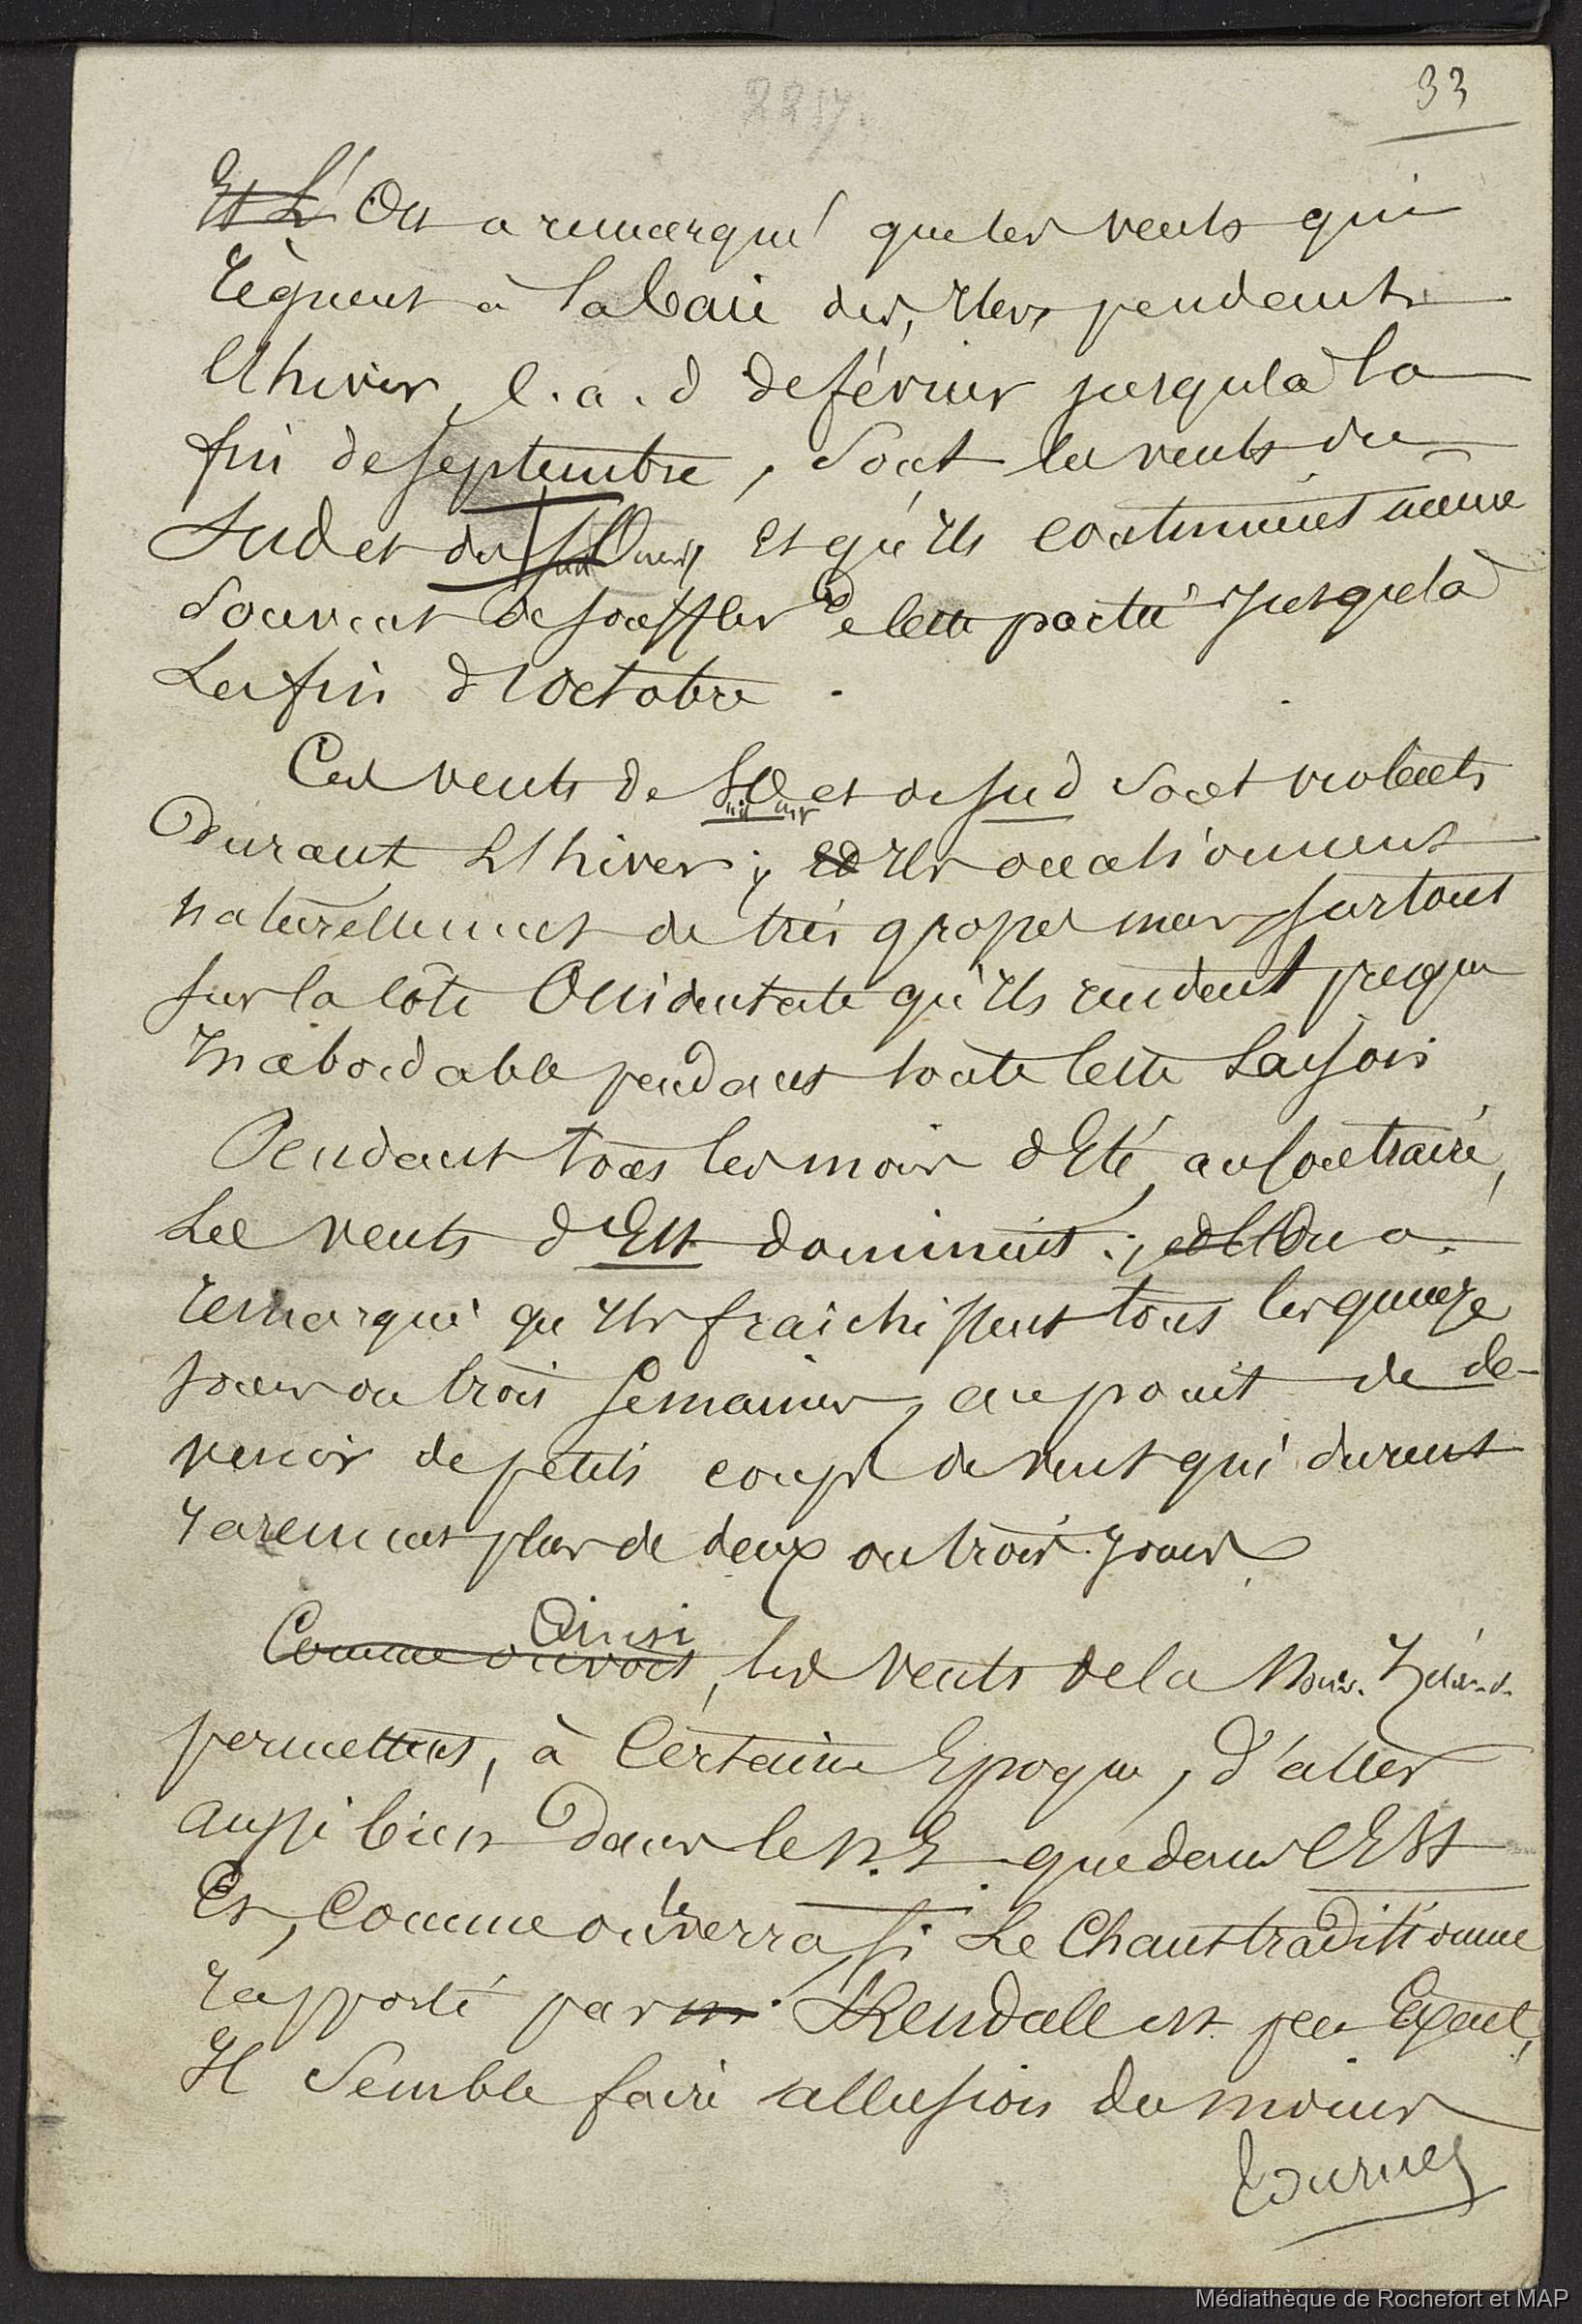 33
2257.
Et L' On a remarqué que les vents qui
règnent à la baie des, Iles, pendant
l'hiver, c. a. d de février jusqu'à la
fin de septembre, sont les vents du
Sud et du Sud Ouest, et qu'ils continuent même
souvent de souffler de cette partie jusqu'à
la fin d'Octobre.
Ces vents de Sud Ouest et de Sud sont violents
durant l'hiver; et Ils occationnent
naturellement de très grosses mers, surtout
sur la côte Occidentale qu'Ils rendent presque
Inabordable pendant toute cette saison
Pendant tous les mois d'Eté, au contraire,
Les vents d'Est dominent; et l'On a
remarqué qu'Ils fraichissent tous les quinze
jours ou trois semaines, au point de de-
venir de petits coups de vent qui durent
rarement plus de deux ou trois jours.
Ainsi
Comme on voit, les vents de la Nouv. Zéland.
permettent, à certaine Epoque, d'aller
aussi bien dans le N.E que dans l'Est
Et, comme on le verra, si Le Chant traditionne
rapporté par m. Kendall est peu Exact,
Il semble faire allusion du moins
Tournez
Médiathèque de Rochefort et MAP